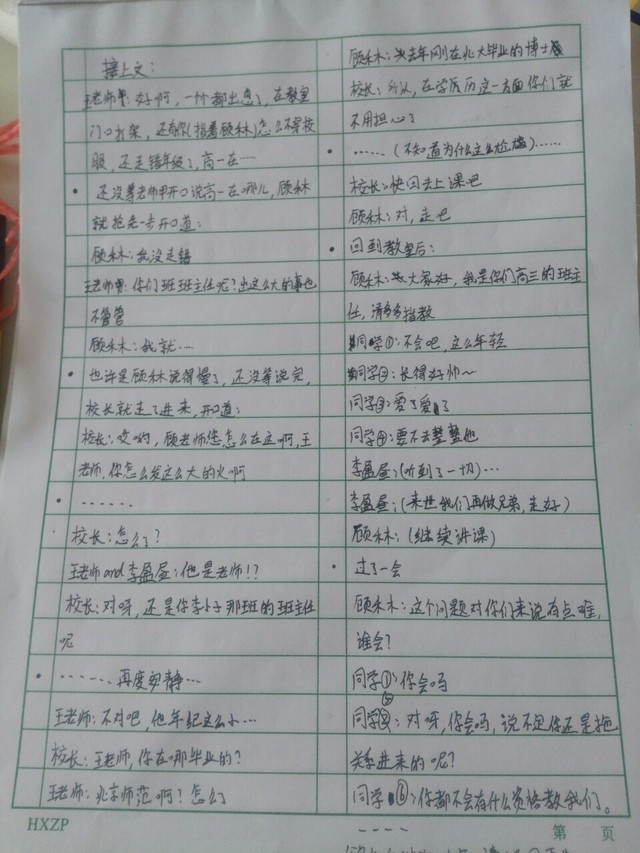 接上文：
王老师：好啊，一个个都出息了，在教室
门口打架，还有你(指着顾禾木)怎么不穿校
服，还走错年级了，高一在…
• 还没等老师开口说高一在哪儿，顾禾木
就抢先一步开口道：
顾禾木：我没走错
王老师：你们班班主任呢？出这么大的事也
不管管
顾禾木：我就…
• 也许是顾禾木说得慢了，还没等说完，
校长就走了进来，开口道：
校长：哎哟，顾老师您怎么在这啊，王
老师，你怎么发这么大的火啊
• ……
校长：怎么了？
王老师and李盈盈：他是老师!？
校长：对呀，还是你李卜子那班的班主任
呢
• ……再度安静…
王老师：不对吧，他年纪这么小…
校长：王老师，你在哪毕业的？
王老师：北京师范啊？怎么
顾禾木：去年刚在北大毕业的博士
校长：所以，在学历这一方面你们就
不用担心了
• ……(不知道为什么这么尴尬)……
校长：快回去上课吧
顾禾木：对，走吧
• 回到教室后：
顾禾木：大家好，我是你们高三的班主
任，请多多指教
同学①：不会吧，这么年轻
同学②：长得好帅~
同学③：爱了爱了
同学④：要不去整整他
李盈盈：(听到了一切)…
李盈盈：(来世我们再做兄弟，走好)
顾禾木：(继续讲课)
• 过了一会
顾禾木：这个问题对你们来说有点难，
谁会？
同学①：你会吗
同学⑤：对呀，你会吗，说不定你还是拖
关系进来的呢？
同学⑥：你都不会有什么资格教我们。
HXZP
第 页